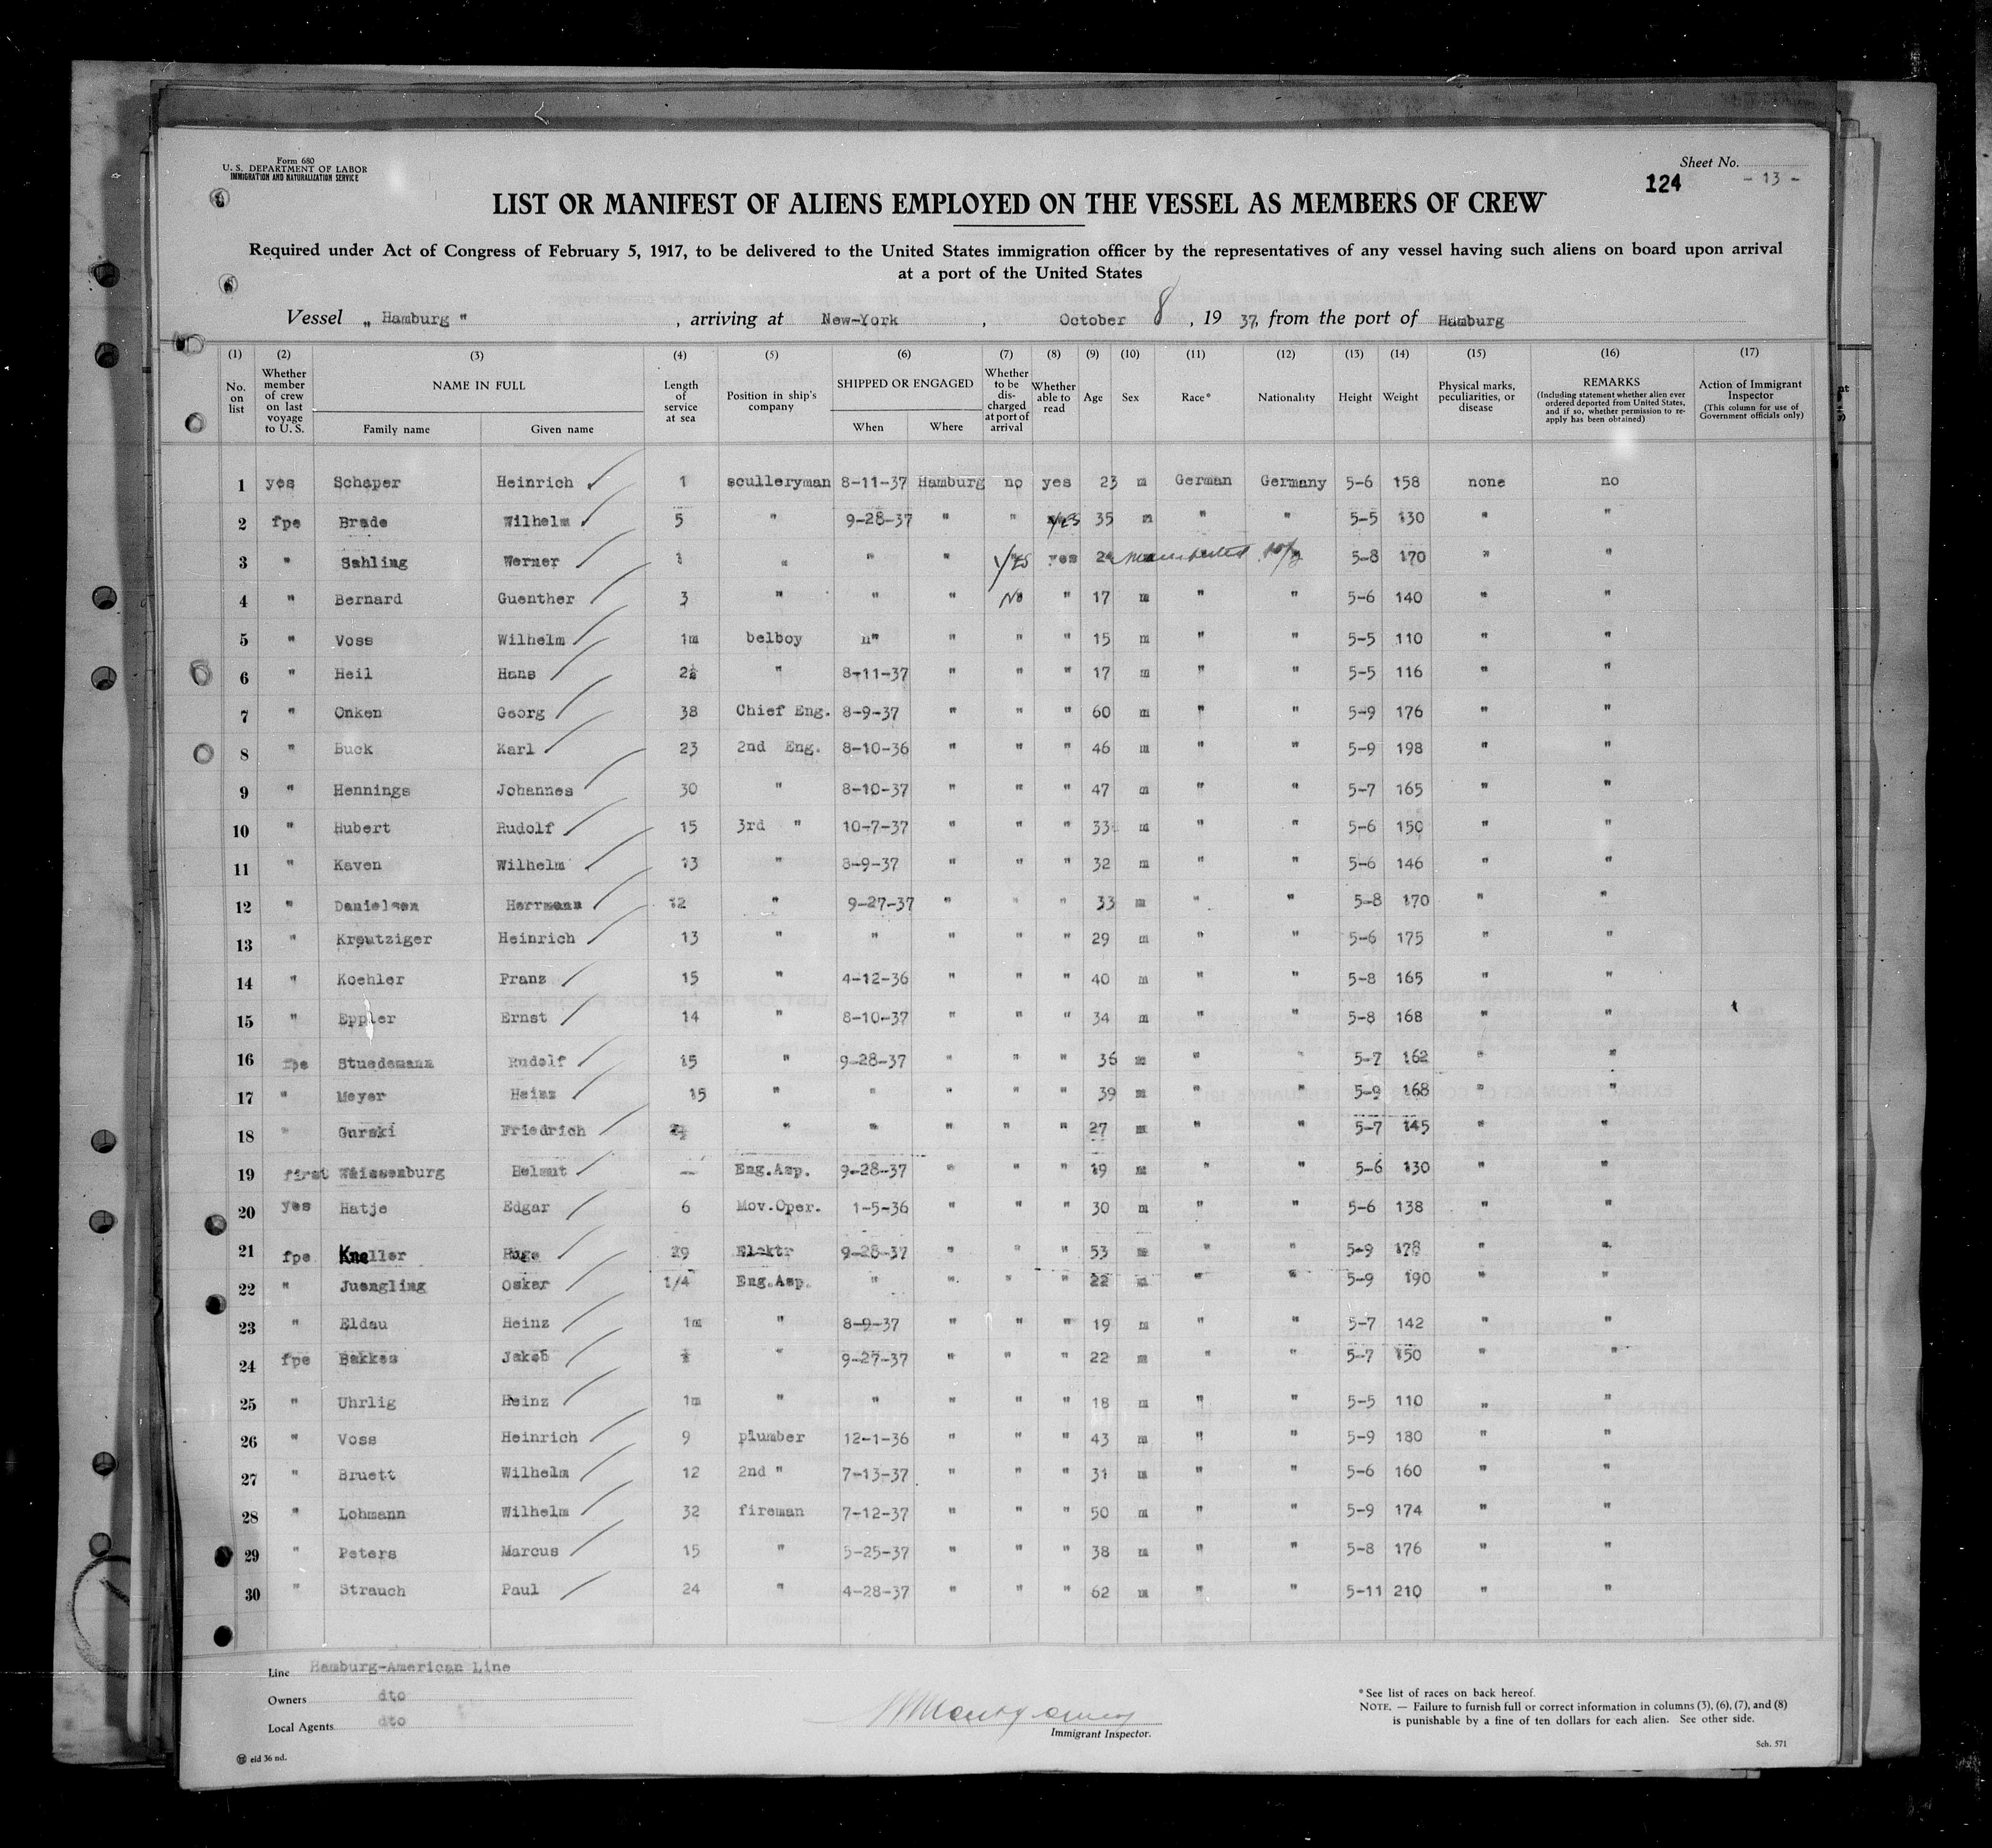 Form 680
U. S. DEPARTMENT OF LABOR
IMMIGRATION AND NATURALIZATION SERVICE
Sheet No.
124 - 13 -
LIST OR MANIFEST OF ALIENS EMPLOYED ON THE VESSEL AS MEMBERS OF CREW
Required under Act of Congress of February 5, 1917, to be delivered to the United States immigration officer by the representatives of any vessel having such aliens on board upon arrival
at a port of the United States
Vessel „ Hamburg ", arriving at New-York, October 8, 1937, from the port of Hamburg
(1) (2) (3) (4) (5) (6) (7) (8) (9) (10) (11) (12) (13) (14) (15) (16) (17)
No. on list
Whether member of crew on last voyage to U. S.
NAME IN FULL
Family name Given name
Length of service at sea
Position in ship's company
SHIPPED OR ENGAGED
When Where
Whether to be discharged at port of arrival
Whether able to read
Age Sex Race* Nationality Height Weight
Physical marks, peculiarities, or disease
REMARKS
(Including statement whether alien ever ordered deported from United States, and if so, whether permission to re-apply has been obtained)
Action of Immigrant Inspector
(This column for use of Government officials only)
1 yes Schaper Heinrich 1 sculleryman 8-11-37 Hamburg no yes 23 m German Germany 5-6 158 none no
2 fpe Brade Wilhelm 5 " 9-28-37 " " yes 35 m " " 5-5 130 " "
3 " Sahling Werner " " " yes yes 5-8 170 " "
4 " Bernard Guenther 3 " " " No " 17 m " " 5-6 140 " "
5 " Voss Wilhelm 1m belboy " " " " 15 m " " 5-5 110 " "
6 " Heil Hans 2½ " 8-11-37 " " " 17 m " " 5-5 116 " "
7 " Onken Georg 38 Chief Eng. 8-9-37 " " " 60 m " " 5-9 176 " "
8 " Buck Karl 23 2nd Eng. 8-10-36 " " " 46 m " " 5-9 198 " "
9 " Hennings Johannes 30 " 8-10-37 " " " 47 m " " 5-7 165 " "
10 " Hubert Rudolf 15 3rd " 10-7-37 " " " 33 m " " 5-6 150 " "
11 " Kaven Wilhelm 13 " 8-9-37 " " " 32 m " " 5-6 146 " "
12 " Danielsen Herrmann 12 " 9-27-37 " " " 33 m " " 5-8 170 " "
13 " Kreutziger Heinrich 13 " " " " " 29 m " " 5-6 175 " "
14 " Koehler Franz 15 " 4-12-36 " " " 40 m " " 5-8 165 " "
15 " Eppler Ernst 14 " 8-10-37 " " " 34 m " " 5-8 168 " "
16 fpe Stuedemann Rudolf 15 " 9-28-37 " " " 36 m " " 5-7 162 " "
17 " Meyer Heinz 15 " " " " " 39 m " " 5-9 168 " "
18 " Gurski Friedrich " " " " " 27 m " " 5-7 145 " "
19 first Weissenburg Helmut — Eng.Asp. 9-28-37 " " " 19 m " " 5-6 130 " "
20 yes Hatje Edgar 6 Mov.Oper. 1-5-36 " " " 30 m " " 5-6 138 " "
21 fpe Kneller Hugo 29 Elektr 9-28-37 " " " 53 m " " 5-9 178 " "
22 " Juengling Oskar 1/4 Eng.Asp. " " " " 22 m " " 5-9 190 " "
23 " Eldau Heinz 1m " 8-9-37 " " " 19 m " " 5-7 142 " "
24 fpe Bakkes Jakob " 9-27-37 " " " 22 m " " 5-7 150 " "
25 " Uhrlig Heinz 1m " " " " " 18 m " " 5-5 110 " "
26 " Voss Heinrich 9 plumber 12-1-36 " " " 43 m " " 5-9 180 " "
27 " Bruett Wilhelm 12 2nd " 7-13-37 " " " 31 m " " 5-6 160 " "
28 " Lohmann Wilhelm 32 fireman 7-12-37 " " " 50 m " " 5-9 174 " "
29 " Peters Marcus 15 " 5-25-37 " " " 38 m " " 5-8 176 " "
30 " Strauch Paul 24 " 4-28-37 " " " 62 m " " 5-11 210 " "
Line Hamburg-American Line
Owners dto
Local Agents dto
Montgomery
Immigrant Inspector.
*See list of races on back hereof.
NOTE. — Failure to furnish full or correct information in columns (3), (6), (7), and (8)
is punishable by a fine of ten dollars for each alien. See other side.
Sch. 571
eid 36 nd.